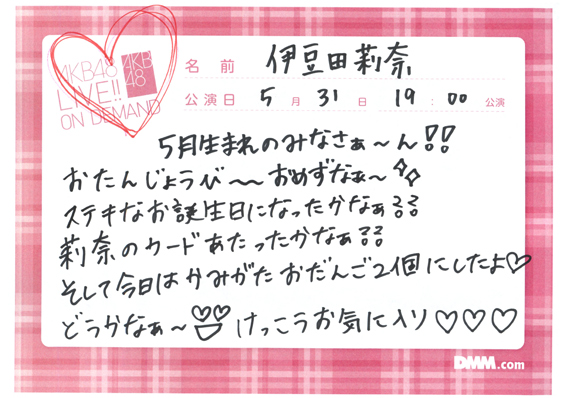 AKB48
LIVE!!
ON DEMAND
AKB
48
名前 伊豆田莉奈
公演日 5月31日 19:00 公演
5月生まれのみなさぁ〜ん!!
おたんじょうび〜〜おめずなぁ〜
ステキなお誕生日になったかなぁ??
莉奈のカードあたったかなぁ??
そして今日はかみがたおだんご2個にしたよ♡
どうかなぁ〜 けっこうお気に入り♡♡♡
DMM.com